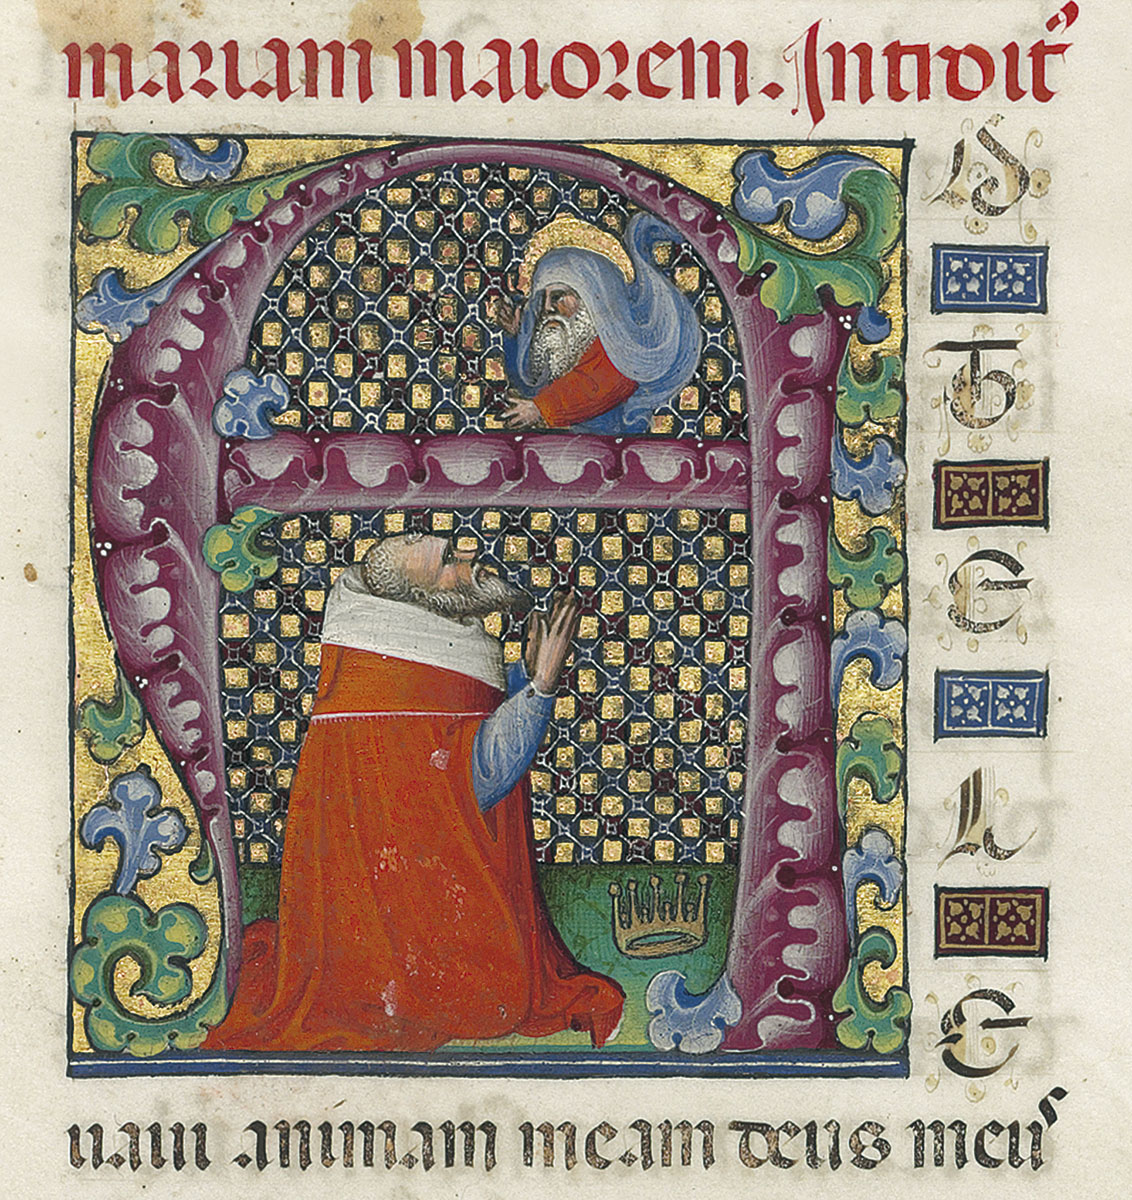 mariam maiorem. Introit᾽
A
D
T
E
L
E
uaui animam meam deus meuˢ